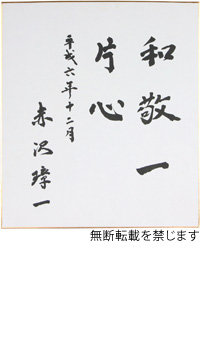 和敬一
片心
平成六年十二月
赤沢璋一
無断転載を禁じます